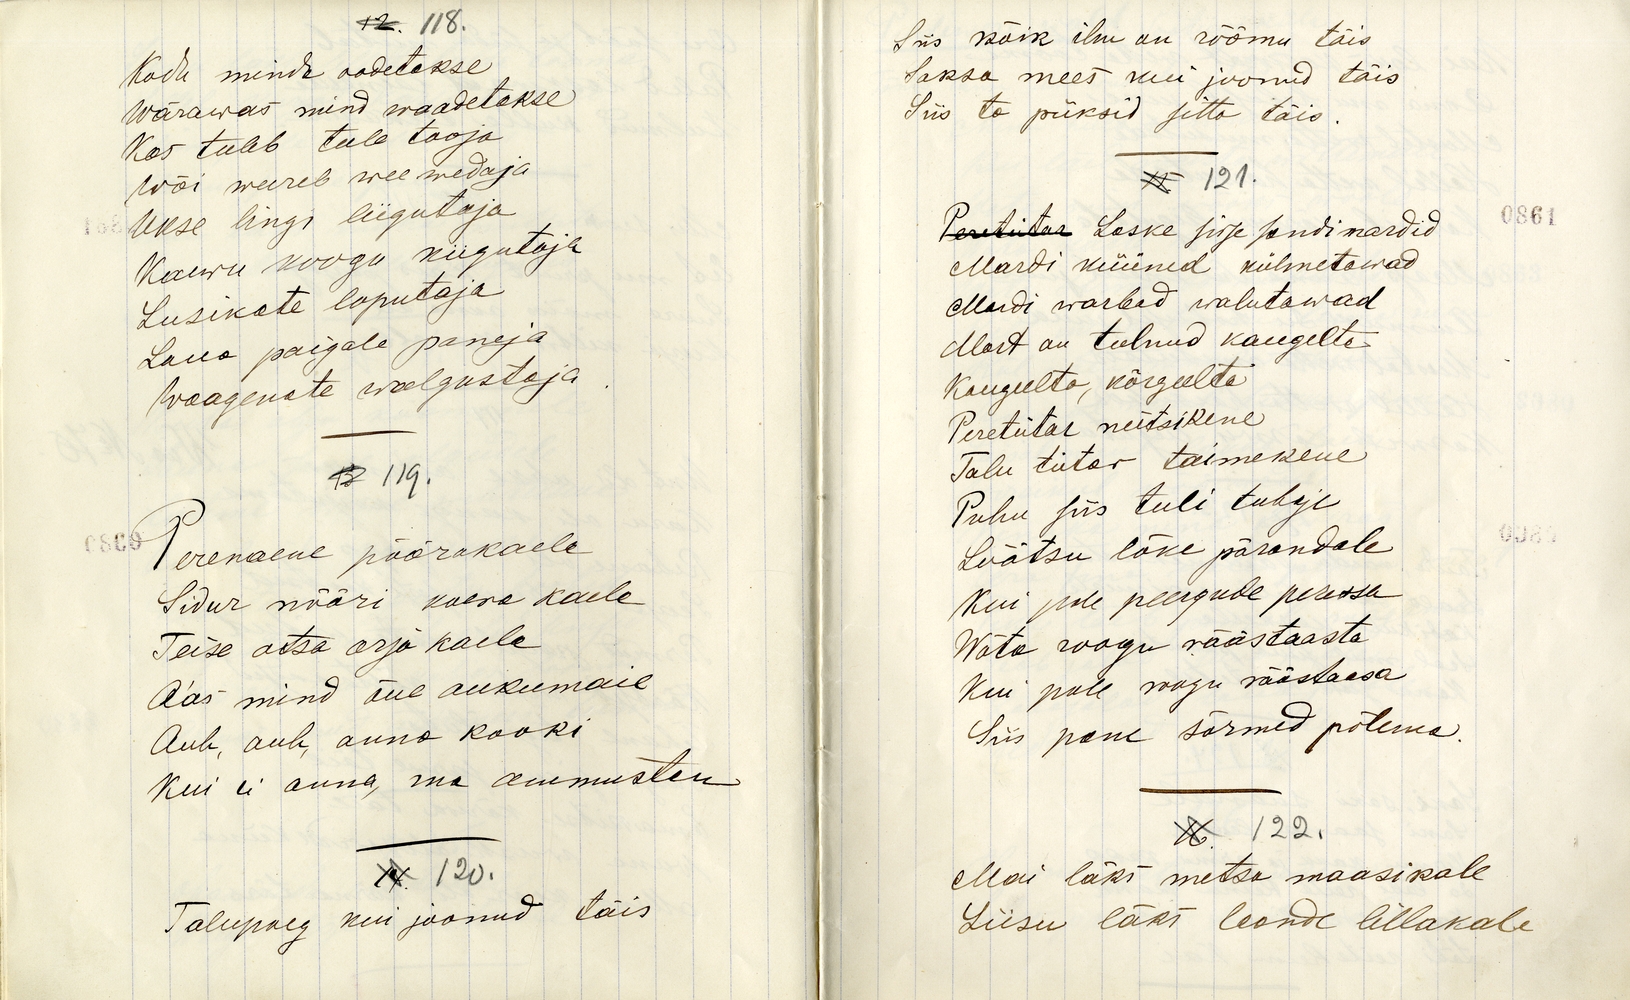 12. 118.
Kodu minda oodetakse
Wärawas mind waadetakse
Kas tuleb tule tooja
Wõi weereb wee wedaja
Ukse lingi liigutaja
Kaewu koogu kiigutaja
Lusikate loputaja
Laua paigale paneja
Waagenate walgustaja.
13 119.
Perenaene pöörakaela
Sidus nööri koera kaela
Teise otsa orja kaela
A'as mind õue aukumaie
Auh, auh, anna kooki
Kui ei anna, ma ammustan
14. 120.
Talupoeg kui joonud täis
Siis kõik ilm on rõõmu täis
Saksa mees kui joonud täis
Siis ta püksid sitta täis.
15 121.
Peretütar Laske sisse sandimardid
Mardi küüned külmetawad
Mardi warbad walutawad
Mart on tulnud kaugelta
Kaugeelta, kõrgeelta
Peretütar neitsikene
Talu tütar taimekene
Puhu siis tuli tuhaje
Lõõtsu lõke parandale
Kui pole peergude peressa
Wõta roogu räästaasta
Kui pole roogu räästaasa
Siis pane sõrmed põlema.
16. 122.
Mai läks metsa maasikale
Liisu läks laande lillakale
0861
0860